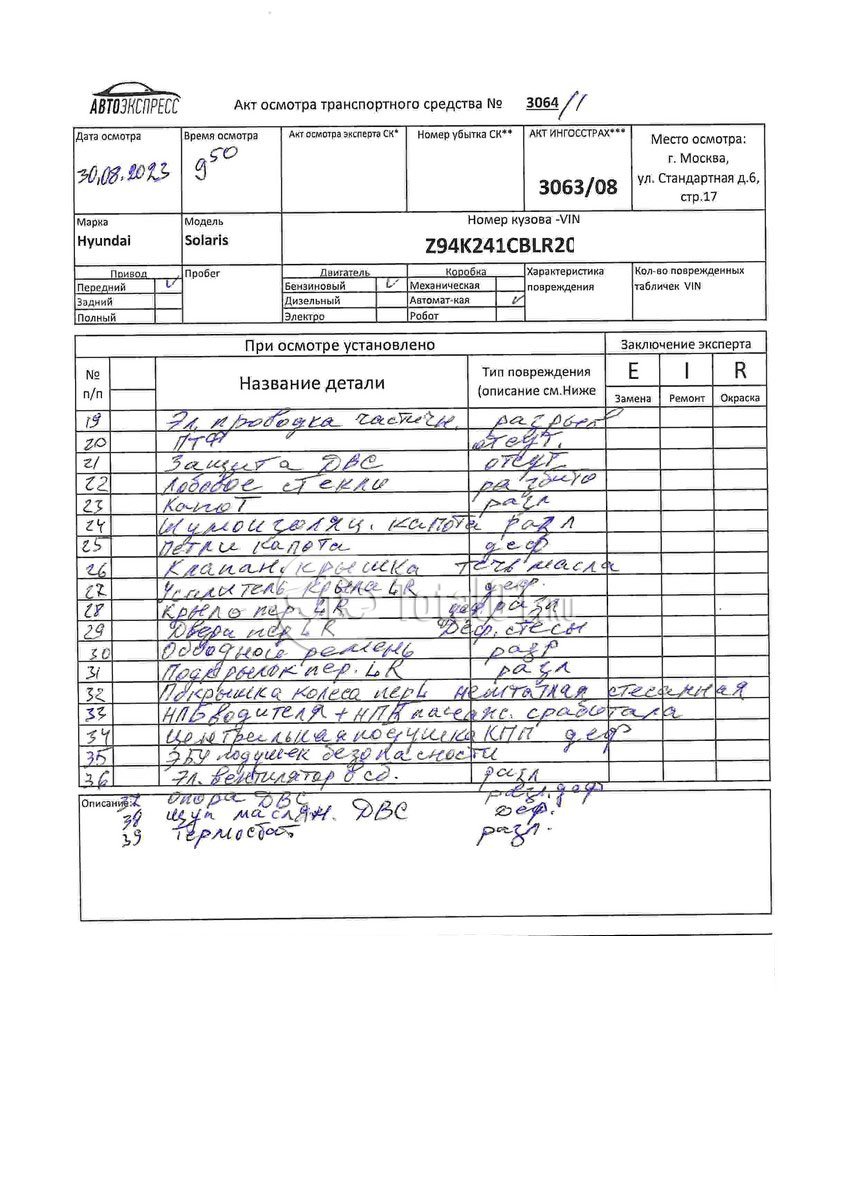 АВТОЭКСПРЕСС
Акт осмотра транспортного средства № 3064/1
Дата осмотра
30.08.2023
Время осмотра
9 50
Акт осмотра эксперта СК*
Номер убытка СК**
АКТ ИНГОССТРАХ***
3063/08
Место осмотра:
г. Москва,
ул. Стандартная д.6,
стр.17
Марка
Hyundai
Модель
Solaris
Номер кузова -VIN
Z94K241CBLR20
Привод
Передний V
Задний
Полный
Пробег
Двигатель
Бензиновый V
Дизельный
Электро
Коробка
Механическая
Автомат-кая V
Робот
Характеристика
повреждения
Кол-во поврежденных
табличек VIN
При осмотре установлено
Заключение эксперта
№
п/п
Название детали
Тип повреждения
(описание см.Ниже
E I R
Замена Ремонт Окраска
19 Эл. проводка частичн. разрыв
20 ПТФ отсут.
21 Защита ДВС отсут
22 Лобовое стекло разбито
23 Капот разл
24 Шумоизоляц. капота разл
25 Петли капота деф
26 Клапан. крышка течь масла
27 Усилитель крыла LR деф.
28 Крыло пер LR деф разл
29 Двери пер LR Деф. стесы
30 ремень разр
31 Подкрылок пер. LR разл
32 Покрышка колеса пер L нештатная стесанная
33 НПБ водителя + НПБ пассаж. сработала
34 подушка КПП деф
35 ЭБУ подушек безопасности
36 Эл. вентилятор в сб. разл
Описание:
37 опора ДВС разл. деф
38 щуп маслян. ДВС Деф.
39 Термостат разл.